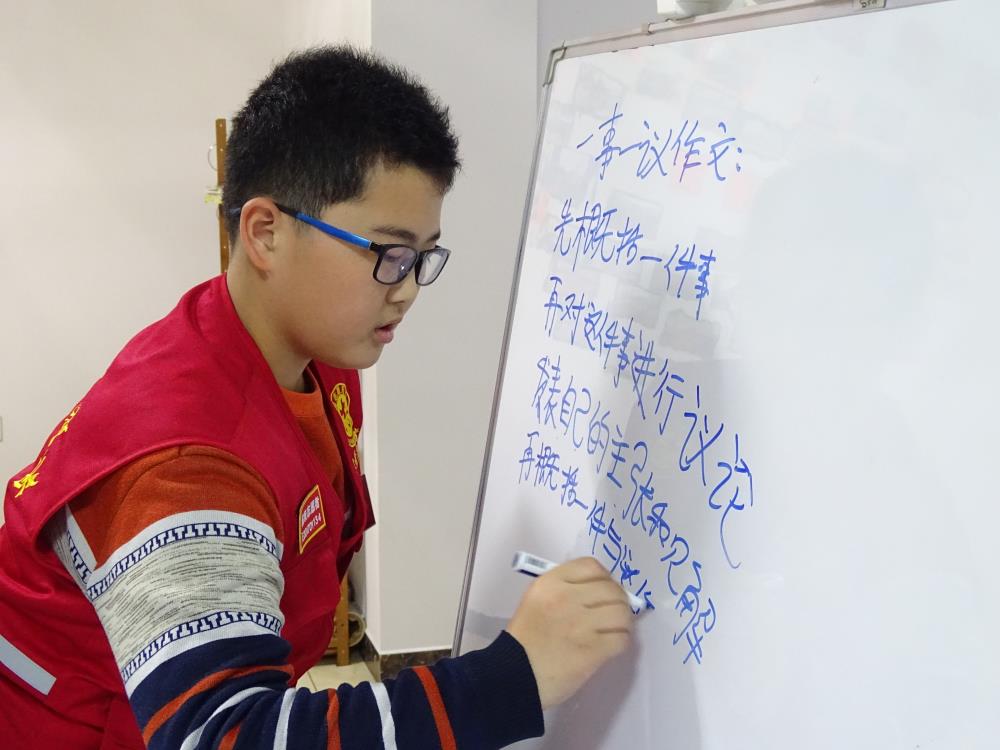 一事一议作文:
先概括一件事
再对这件事进行议论
发表自己的主张和见解
再概括一件与